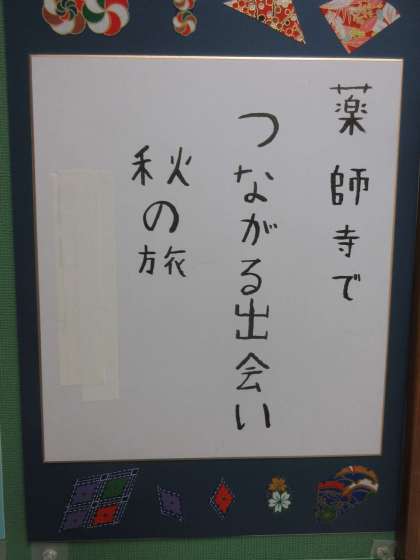 薬師寺で
つながる出会い
秋の旅